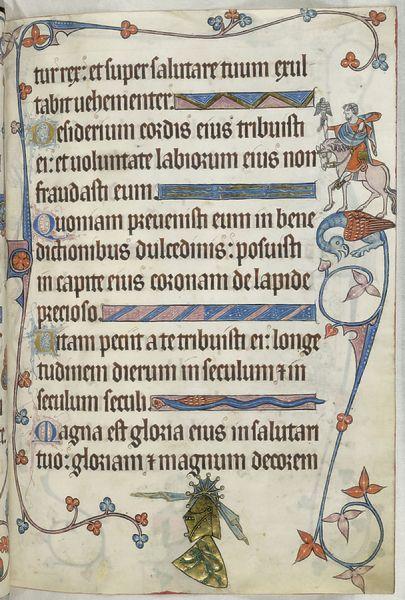 tur rex: et super salutare tuum exul
tabit uehementer.
Desiderium cordis eius tribuisti
ei: et uoluntate labiorum eius non
fraudasti eum.
Quoniam preuenisti eum in bene
dictionibus dulcedinis: posuisti
in capite eius coronam de lapide
precioso.
Uitam peciit a te tribuisti ei: longi
tudinem dierum in seculum ⁊ in
seculum seculi.
Magna est gloria eius in salutari
tuo: gloriam ⁊ magnum decorem